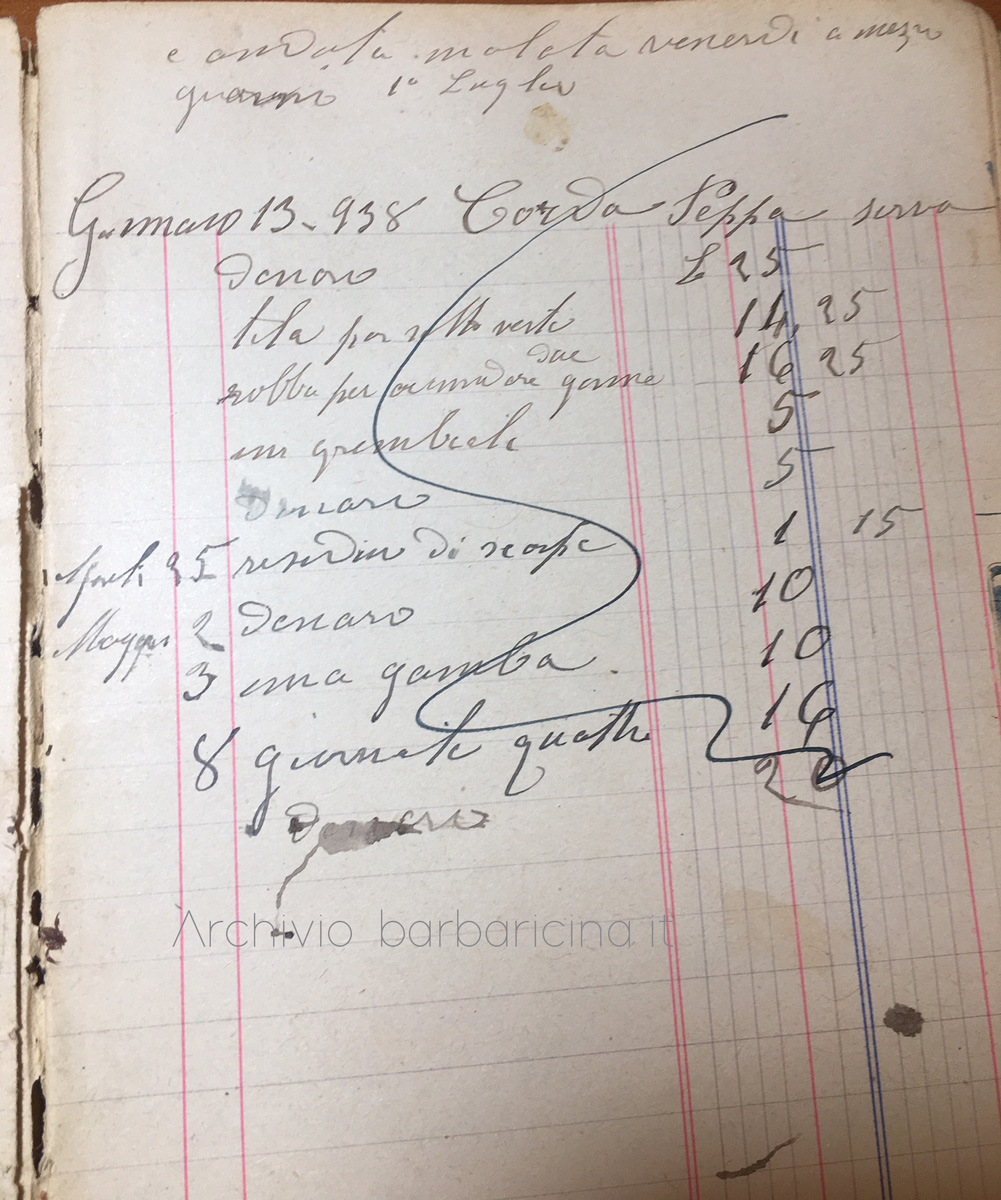 e andata malata venerdi a mezzu
giorni 1° Luglio
Gennaio 13-938 Corda Peppa serva
Denaro £ 25
tela per sotto veste 14,25
robba per acumodare due ganne 16 25
un grembiale 5
Denaro 5
Aprile 25 resordiu di scarpe 1 15
Maggio 2 Denaro 10
3 una gamba 10
8 giornate quattro 16
Denaro 20
Archivio barbaricina.it